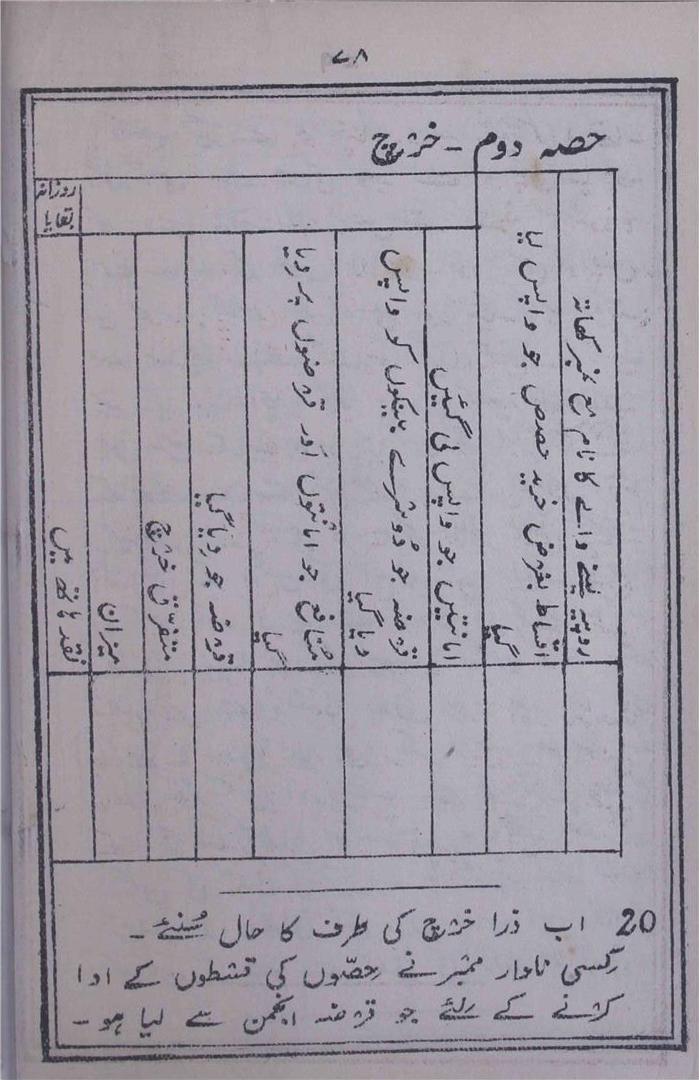 ۷۸
حصہ دوم - خرچ
روزانہ
بقایا
روپیہ لینے والے کا نام مع نمبر کھاتہ
اقساط بغرض خرید حصص جو واپس لیا
گیا
امانتیں جو واپس لی گئیں
قرضہ جو دُوسرے بینکوں کو واپس
دیا گیا
منافع جو امانتوں اور قرضوں پر دیا
گیا
قرضہ جو دیا گیا
متفرّق خرچ
میزان
نقد ہاتھ میں
20 اب ذرا خرچ کی طرف کا حال سُنئے -
کِسی نادار ممبر نے حِصّوں کی قسطوں کے ادا
کرنے کے لِئے جو قرضہ انجمن سے لیا ہو -